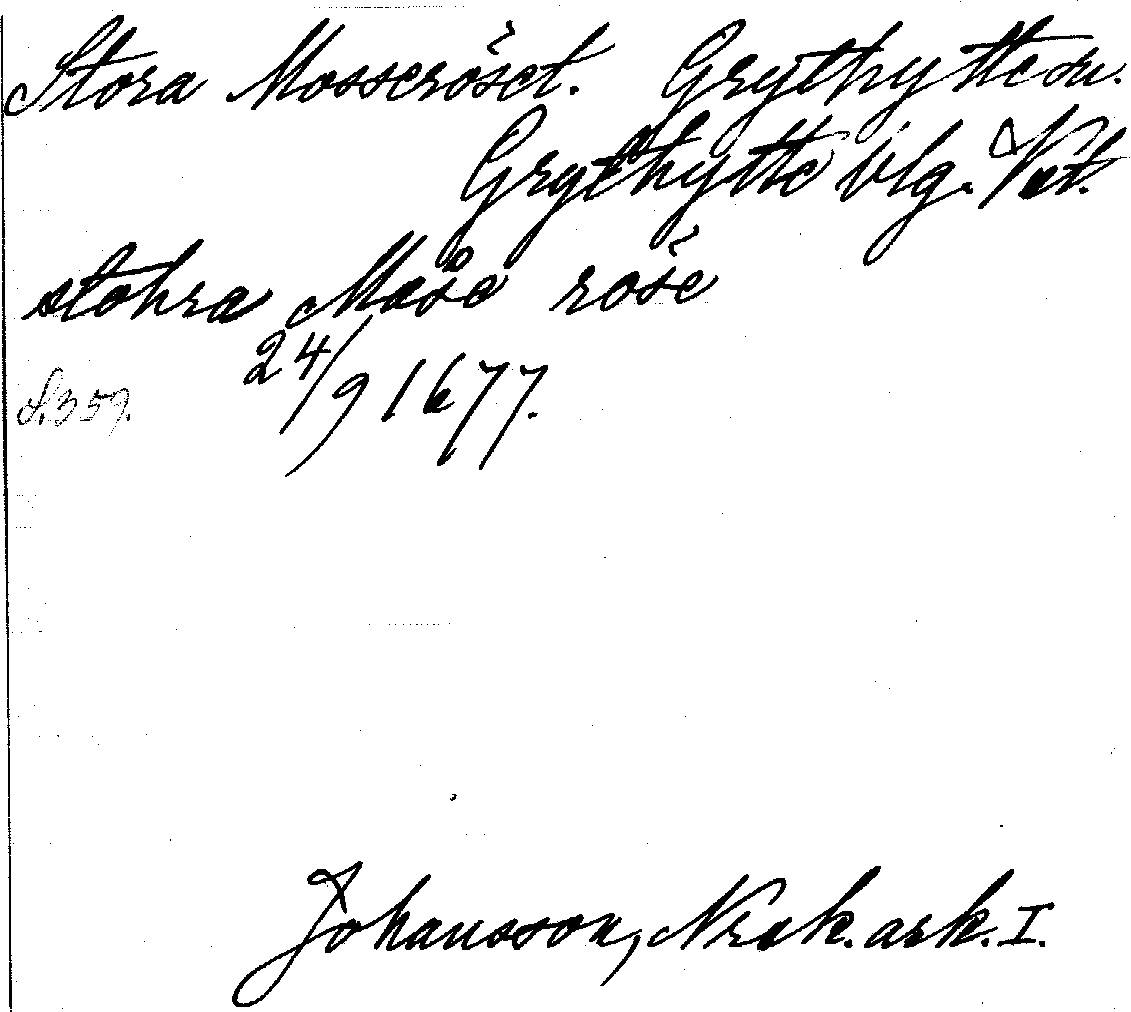 Stora Mosseröset. Grythytte sn.
Grythytte vlg. Vstm.
stohra Måse röse
24/9 1677.
S. 359.
Johansson, Nrak. ark. I.